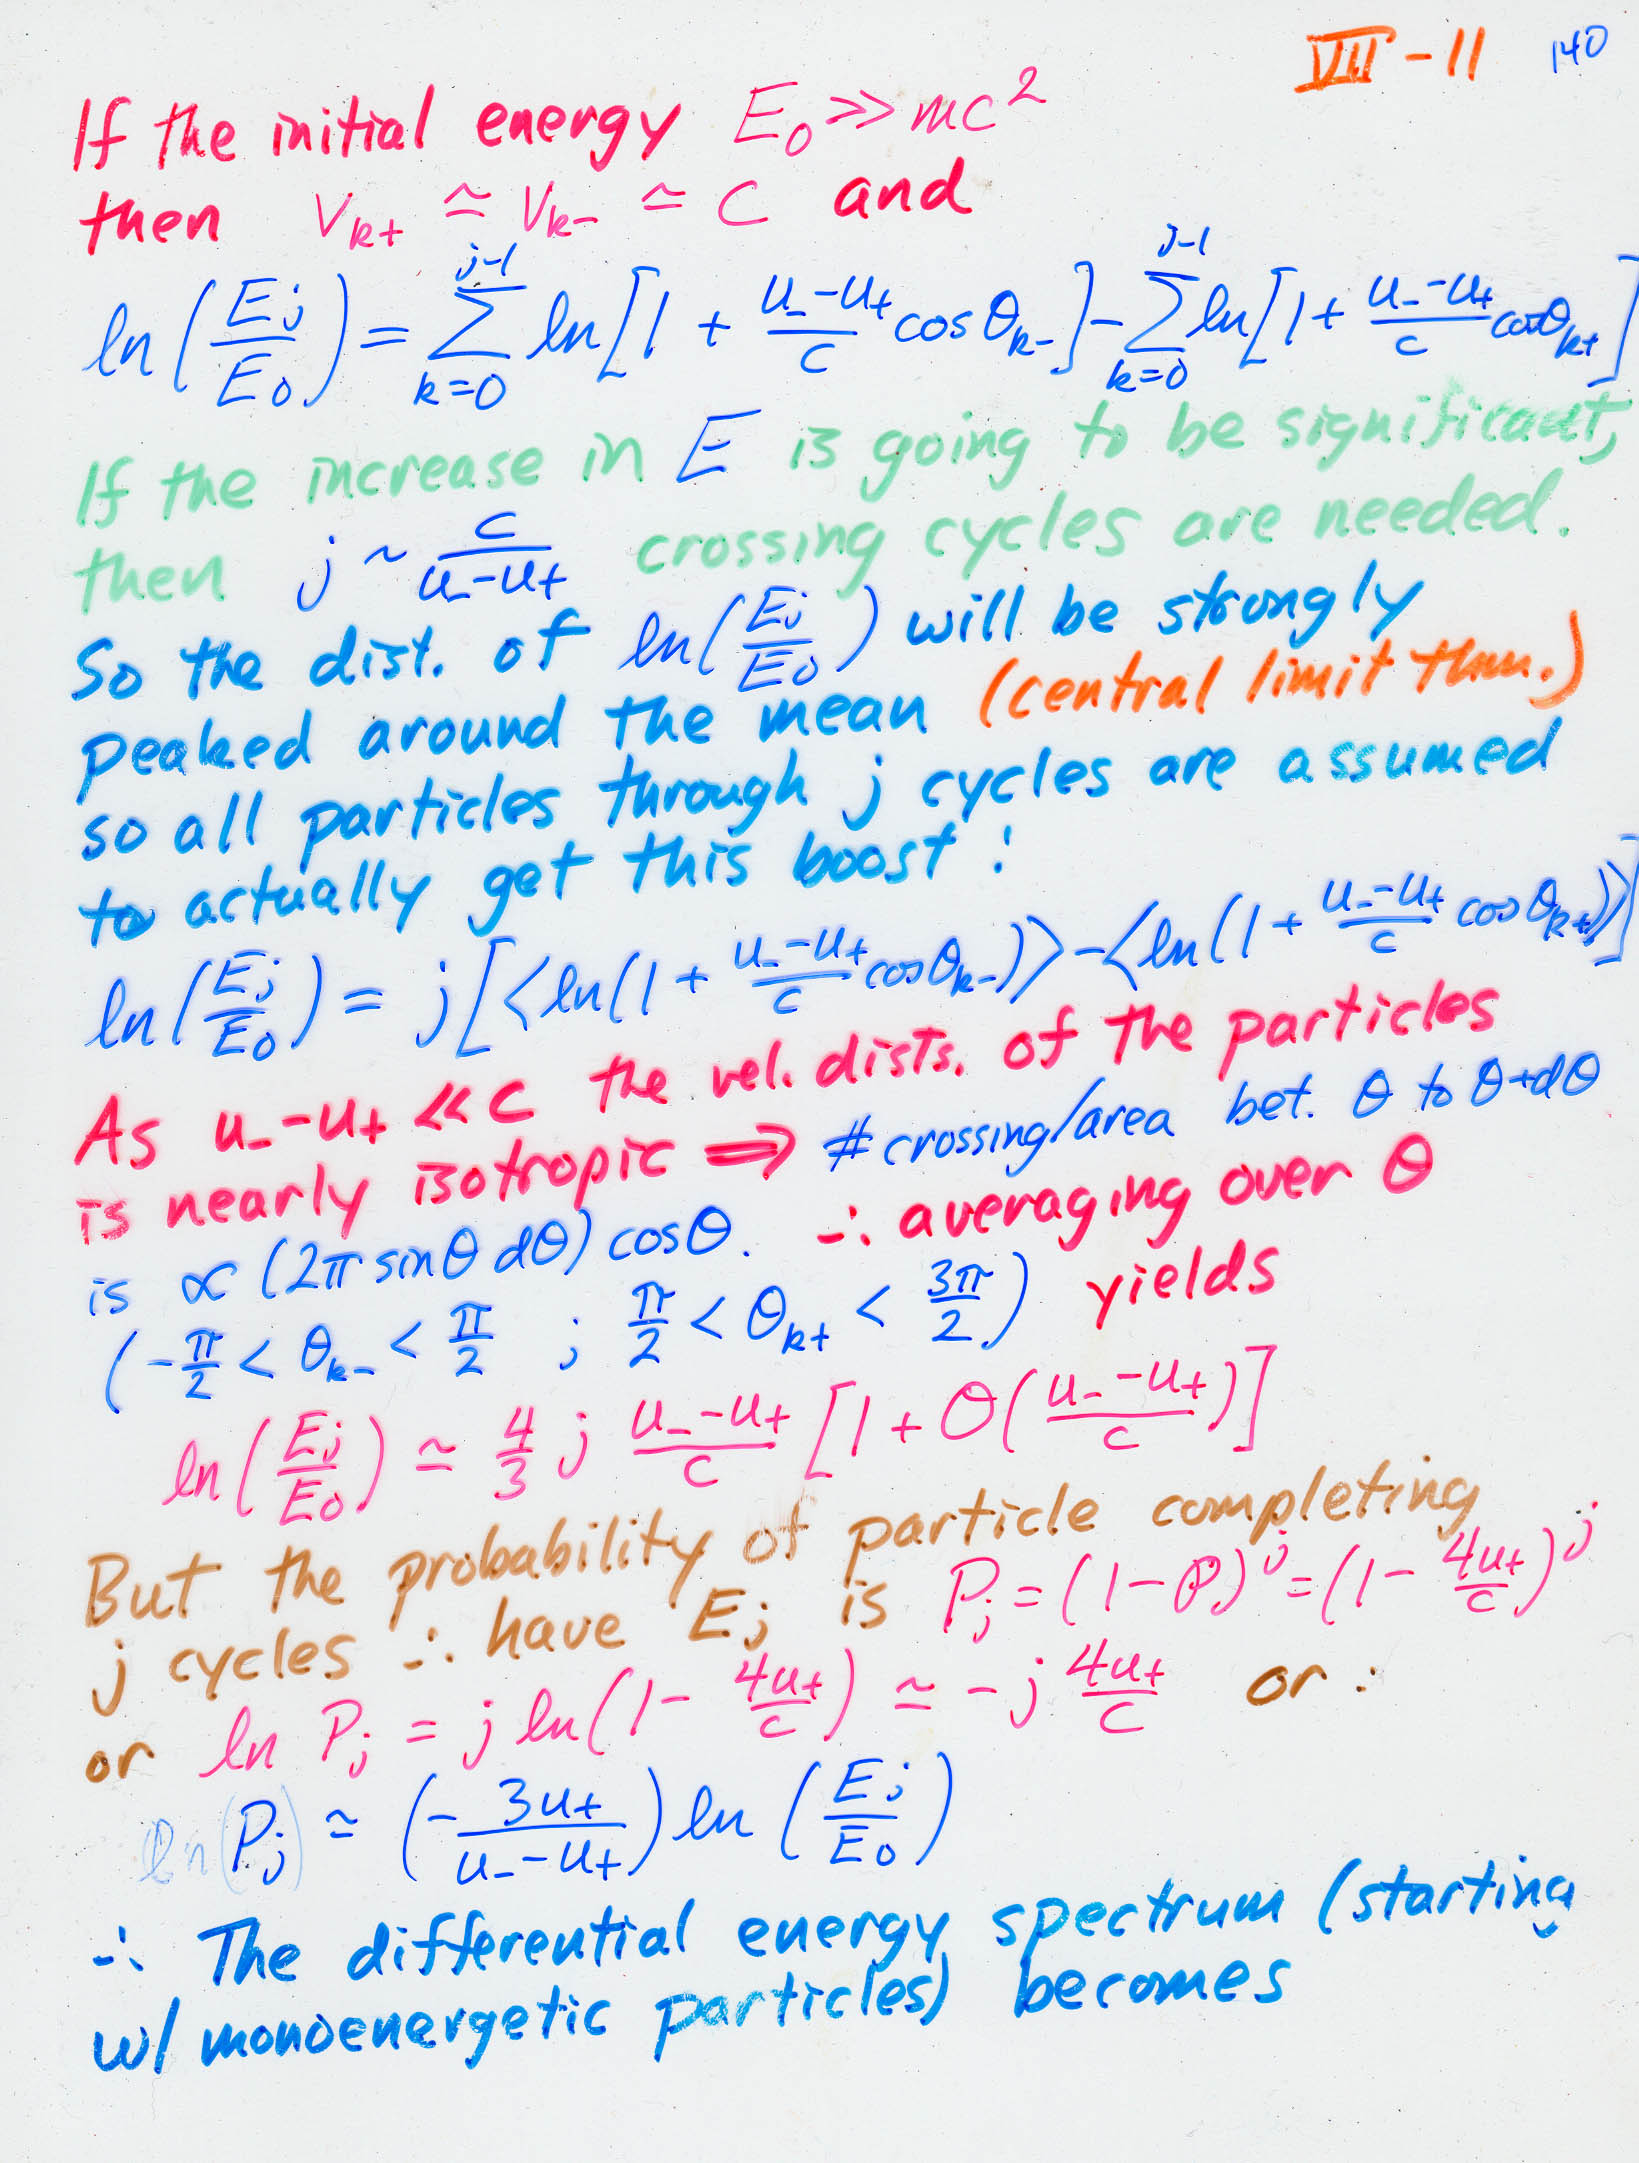 VIII - 11 140
If the initial energy E₀ ≫ mc²
then V_{k+} ≃ V_{k-} ≃ C and
ln(E_j/E₀) = Σ_{k=0}^{j-1} ln[1 + (u₋-u₊)/c cos θ_{k-}] - Σ_{k=0}^{j-1} ln[1 + (u₋-u₊)/c cosθ_{k+}]
If the increase in E is going to be significant,
then j ~ c/(u₋-u₊) crossing cycles are needed.
So the dist. of ln(E_j/E₀) will be strongly
peaked around the mean (central limit thm.)
so all particles through j cycles are assumed
to actually get this boost :
ln(E_j/E₀) = j[<ln(1 + (u₋-u₊)/c cosθ_{k-})> - <ln(1 + (u₋-u₊)/c cos θ_{k+})>]
As u₋-u₊ ≪ c the vel. dists. of the particles
is nearly isotropic ⟹ # crossing/area bet. θ to θ+dθ
is ∝ (2π sinθ dθ) cosθ. ∴ averaging over θ
(-π/2 < θ_{k-} < π/2 ; π/2 < θ_{k+} < 3π/2) yields
ln(E_j/E₀) ≃ 4/3 j (u₋-u₊)/c [1 + O((u₋-u₊)/c)]
But the probability of particle completing
j cycles ∴ have E_j is P_j = (1-𝒫)^j = (1 - 4u₊/c)^j
or ln P_j = j ln(1 - 4u₊/c) ≃ -j 4u₊/c or :
ln(P_j) ≃ (-3u₊/(u₋-u₊)) ln (E_j/E₀)
∴ The differential energy spectrum (starting
w/ monoenergetic particles) becomes